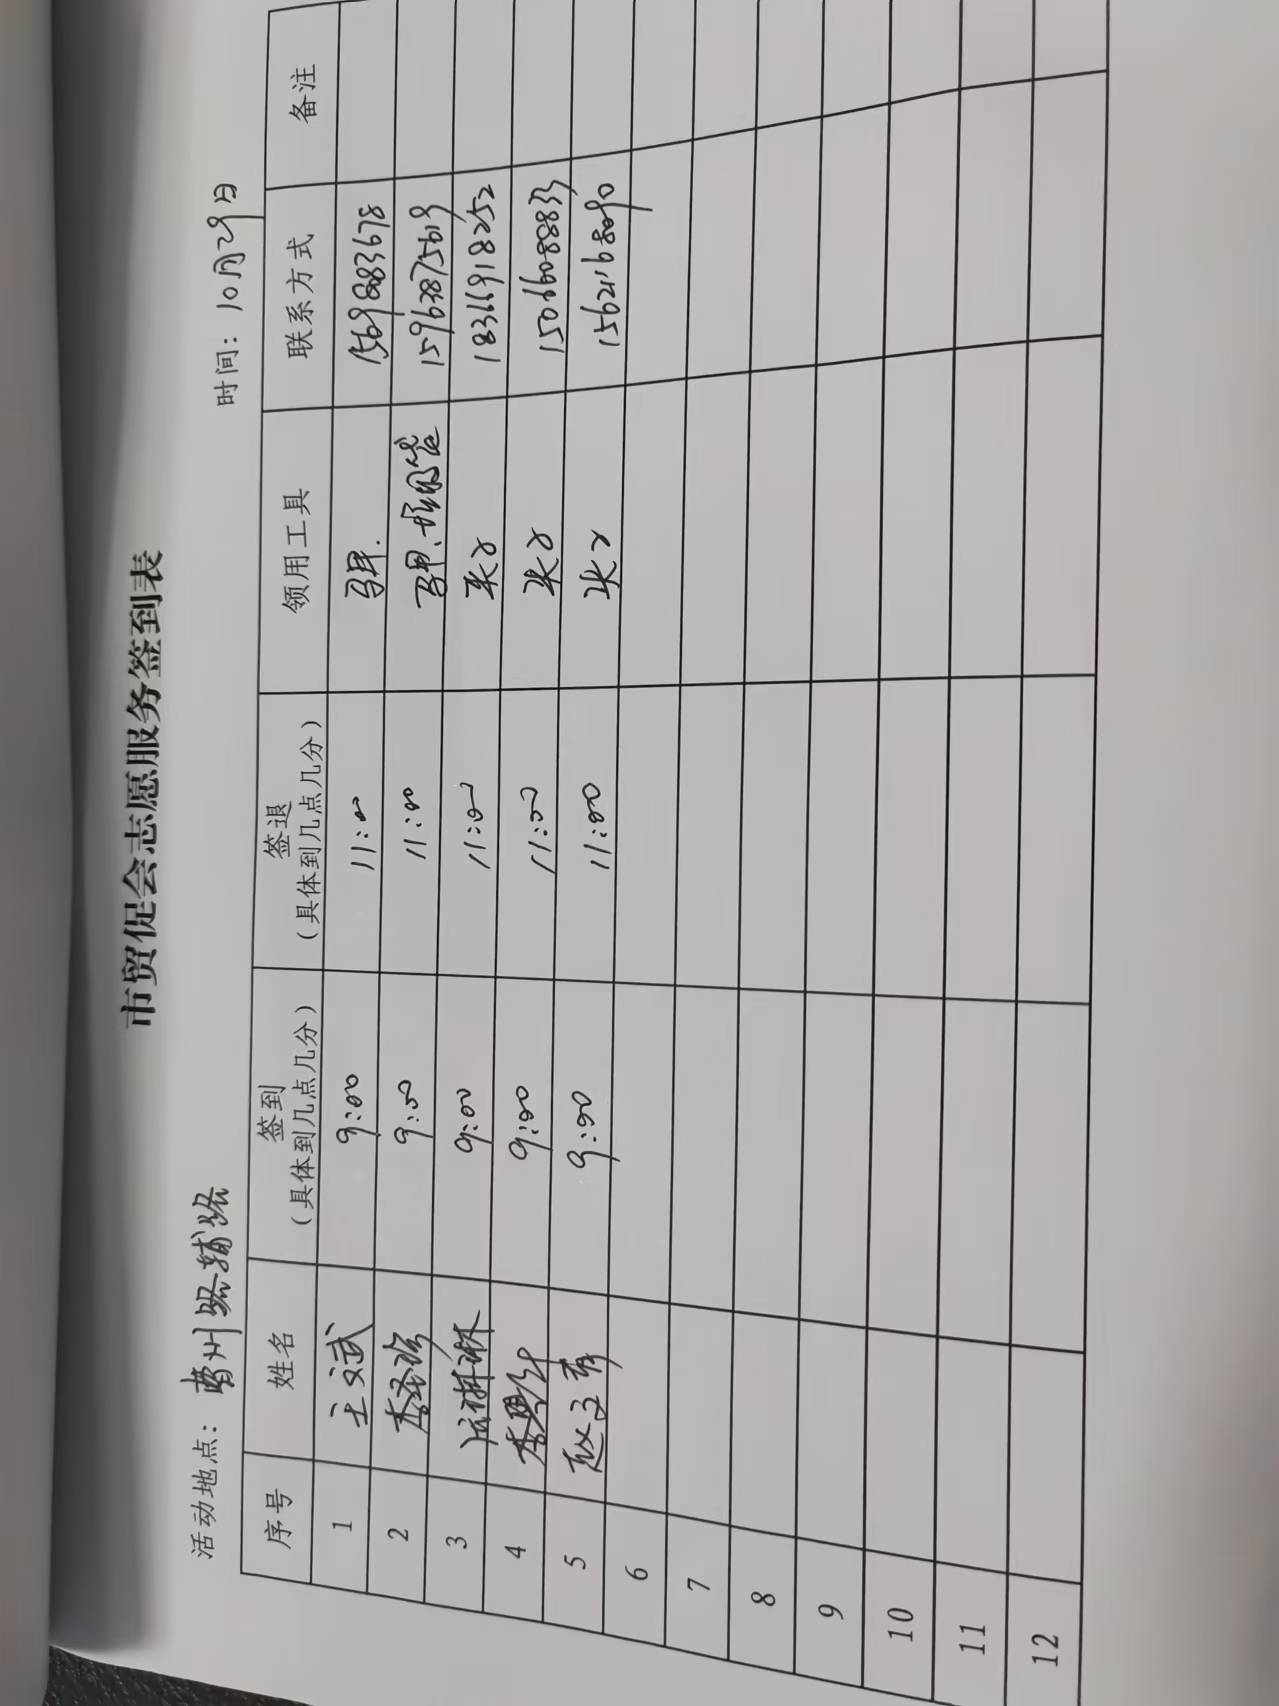 市贸促会志愿服务签到表
活动地点：曹州路辅路 时间：10月29日
序号 姓名 签到（具体到几点几分） 签退（具体到几点几分） 领用工具 联系方式 备注
1 王文武 9:00 11:00 马甲. 15698883678
2 9:00 11:00 马甲、垃圾袋 15963875619
3 9:00 11:00 夹子 18366918252
4 9:00 11:00 夹子 15066088833
5 赵文秀 9:00 11:00 夹子 15621168090
6
7
8
9
10
11
12